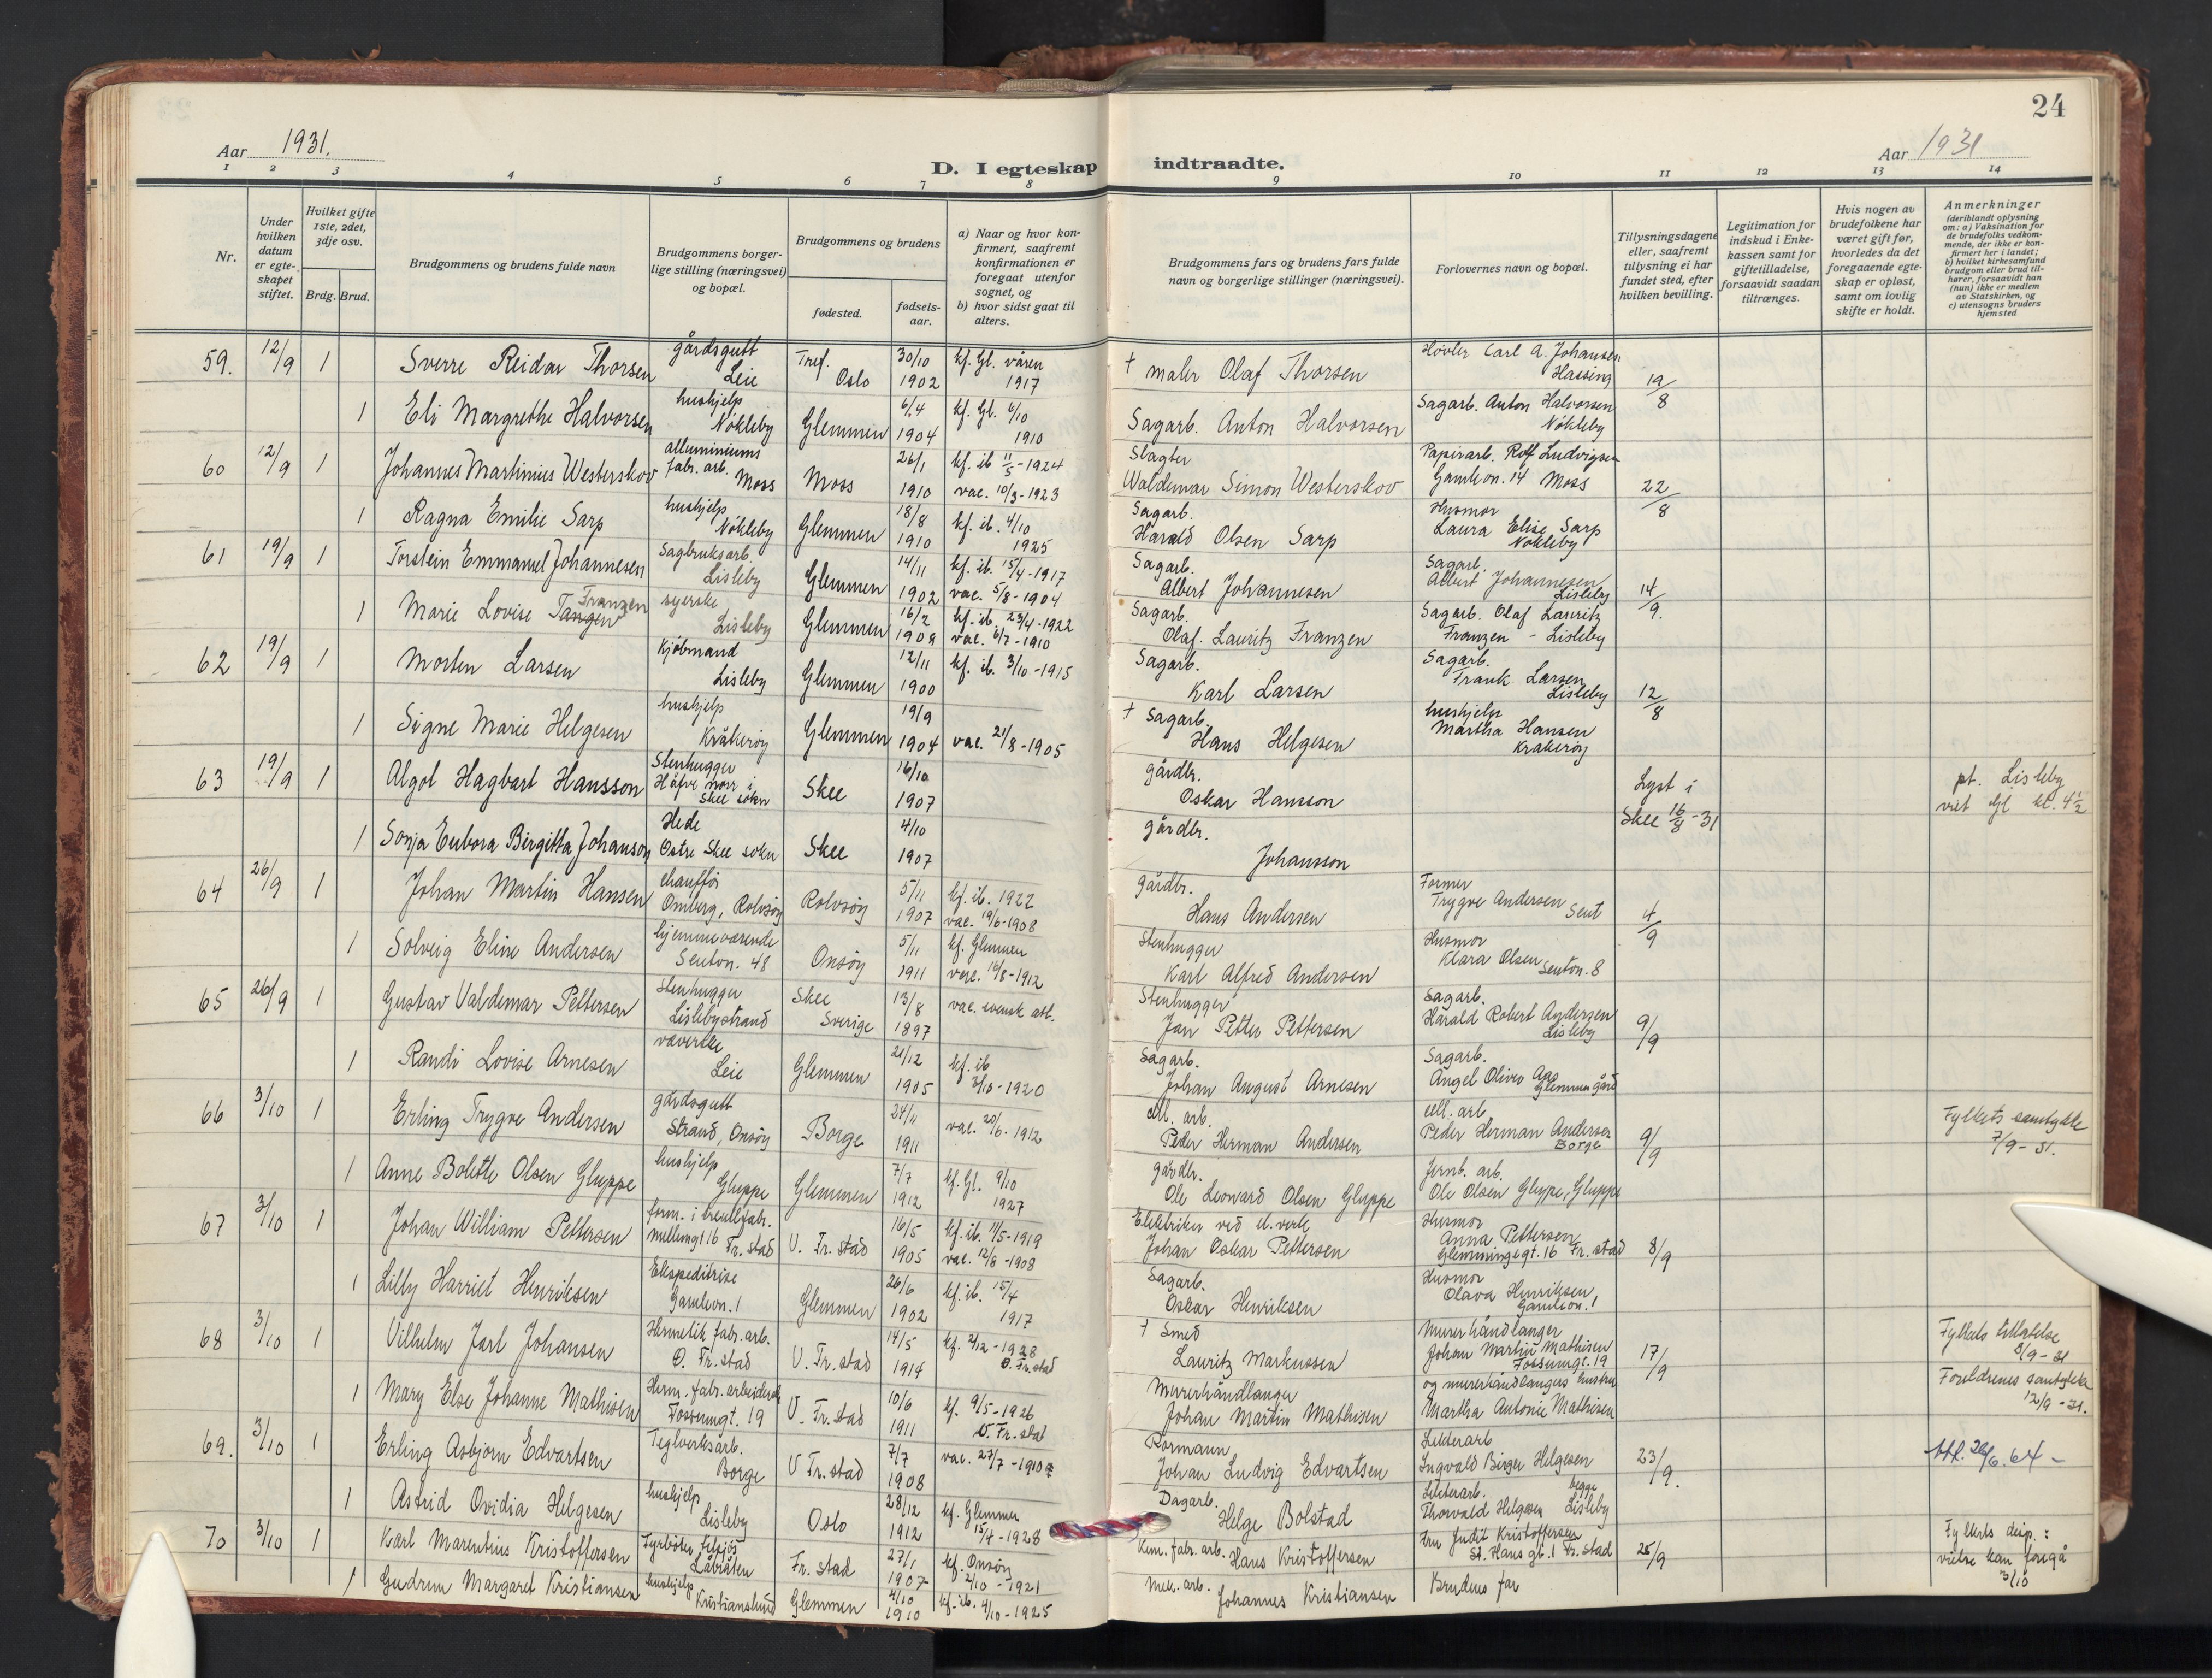 24
Aar 1931.
D. I egteskap indtraadte.
Aar 1931
1 2 3 4 5 6 7 8 9 10 11 12 13 14
Nr.
Under hvilken datum er egteskapet stiftet.
Hvilket gifte 1ste, 2det, 3dje osv.
Brdg. Brud.
Brudgommens og brudens fulde navn
Brudgommens borgerlige stilling (næringsvei) og bopæl.
Brudgommens og brudens
fødested.
fødselsaar.
a) Naar og hvor konfirmert, saafremt konfirmationen er foregaat utenfor sognet, og
b) hvor sidst gaat til alters.
Brudgommens fars og brudens fars fulde navn og borgerlige stillinger (næringsvei).
Forlovernes navn og bopæl.
Tillysningsdagene eller, saafremt tillysning ei har fundet sted, efter hvilken bevilling.
Legitimation for indskud i Enkekassen samt for giftetilladelse, forsaavidt saadan tiltrænges.
Hvis nogen av brudefolkene har været gift før, hvorledes da det foregaaende egteskap er opløst, samt om lovlig skifte er holdt.
Anmerkninger
(deriblandt oplysning om: a) Vaksination for de brudefolks vedkommende, der ikke er konfirmert her i landet; b) hvilket kirkesamfund brudgom eller brud tilhører, forsaavidt han (hun) ikke er medlem av Statskirken, og c) utensogns bruders hjemsted
59. 12/9 1 Sverre Reidar Thorsen gårdsgutt Leie Tref. Oslo 30/10 1902 kf. Gl. våren 1917 † maler Olaf Thorsen Høvler Carl A. Johansen Hassing 19/8
1 Eli Margrethe Halvorsen hushjelp Nökleby Glemmen 6/4 1904 kf. Gl. 6/10 1910 Sagarb. Anton Halvorsen Sagarb. Anton Halvorsen Nökleby
60 12/9 1 Johannes Martinius Westerskov alluminiums fabr. arb. Moss Moss 26/1 1910 kf. ib 11/5 - 1924 vac. 10/3 - 1923 Slagter Waldemar Simon Westerskov Papirarb. Rolf Ludvigsen Gamleon. 14 Moss 22/8
1 Ragna Emilie Sarp hushjelp Nökleby Glemmen 18/8 1910 kf. ib. 4/10 1925 Sagarb. Harald Olsen Sarp Husmor Laura Elise Sarp Nökleby
61 19/9 1 Torstein Emmanuel Johannesen Sagbruksarb. Lisleby Glemmen 14/11 1902 kf. ib. 15/4 - 1917 vac. 5/8 - 1904 Sagarb. Albert Johannesen Sagarb. Albert Johannesen Lisleby 14/9.
1 Marie Lovise Tangen Franzen syerske Lisleby Glemmen 16/2 1908 kf. ib. 23/4 - 1922 vac. 6/7 - 1910 Sagarb. Olaf. Lauritz Franzen Sagarb. Olaf Lauritz Franzen - Lisleby
62 19/9 1 Morten Larsen Kjöbmand Lisleby Glemmen 12/11 1900 kf. ib. 3/10 - 1915 Sagarb. Karl Larsen Sagarb. Frank Larsen Lisleby 12/8
1 Signe Marie Helgesen hushjelp Kråkeröy Glemmen 19/9 1904 vac. 21/8 - 1905 † Sagarb. Hans Helgesen hushjelp Martha Hansen Kråkeröy
63 19/9 1 Algot Hagbart Hansson Stenhugger Håfve norr i Skee sokn Skee 16/10 1907 gårdbr. Oskar Hansson Lyst i Skee 16/8 - 31 pt. Lisleby viet Gl kl. 4 1/2
1 Sonja Eubora Birgitta Johanson Hede Östre Skee sokn Skee 4/10 1907 gårdbr. Johansson
64 26/9 1 Johan Martin Hansen chaufför Omberg, Rolvsöy Rolvsöy 5/11 1907 kf. ib. 1922 vac. 19/6 - 1908 gårdbr. Hans Andersen Former Trygve Andersen Seut 4/9
1 Solveig Eline Andersen hjemmeværende Seuton. 48 Onsöy 5/11 1911 kf. Glemmen vac. 16/8 - 1912 Stenhugger Karl Alfred Andersen Husmor Klara Olsen Seuton. 8
65 26/9 1 Gustav Valdemar Pettersen Stenhugger Lislebystrand Skee Sverige 13/8 1897 vac. svensk att. Stenhugger Jan Petter Pettersen Sagarb. Harald Robert Andersen Lisleby 9/9
1 Randi Lovise Arnesen væverske Leie Glemmen 21/12 1905 kf. ib 3/10 - 1920 Sagarb. Johan August Arnesen Sagarb. Angel Olivo Aas Glemmen gård
66 3/10 1 Erling Trygve Andersen gårdsgutt Strand, Onsöy Borge 24/11 1911 vac. 20/6 - 1912 cell. arb. Peder Herman Andersen cell. arb Peder Herman Andersen Borge 9/9 Fylkets samtykke 7/9 - 31.
1 Anne Bolette Olsen Gluppe hushjelp Gluppe Glemmen 7/7 1912 kf. Gl. 9/10 1927 gårdbr. Ole Leonard Olsen Gluppe Jernb. arb. Ole Olsen Gluppe, Gluppe
67 3/10 1 Johan William Pettersen form. i mellemgt 16 Fr. stad V. Fr. stad 16/5 1905 kf. ib. 11/5 - 1919 vac. 12/8 - 1908 Elektriker ved el. verk Johan Oskar Pettersen Husmor Anna Pettersen Glemmingegt. 16 Fr. stad 8/9
1 Lilly Harriet Henriksen Ekspeditrise Gamleon. 1 Glemmen 26/6 1902 kf. ib. 15/4 1917 Sagarb. Oskar Henriksen Husmor Olava Henriksen Gamleon. 1
68 3/10 1 Vilhelm Jarl Johansen Hermetik fabr. arb. Ö. Fr. stad V. Fr. stad 14/5 1914 kf. 2/12 - 1928 Ö. Fr. stad † Smed Lauritz Markussen Murerhåndlanger Johan Martin Mathisen Fossumgt. 19 17/9 Fylkets tillatelse 8/9 - 31
1 Mary Else Johanne Mathisen Herm. fabr. arbeiderske Fossumgt. 19 V. Fr. stad 10/6 1911 kf. 9/5 - 1926 V. Fr. stad Murerhåndlanger Johan Martin Mathisen og murerhåndlangers hustru Martha Antonie Mathisen Foreldrenes samtykke 12/9 - 31.
69. 3/10 1 Erling Asbjörn Edvartsen Teglverksarb. Borge V Fr. stad 7/7 1908 vac. 27/7 - 1910 Rormann Johan Ludvig Edvartsen Lekterarb Ingvald Birger Helgesen 23/9. Att. 26/6. 64 -
1 Astrid Ovidia Helgesen hushjelp Lisleby Oslo 28/12 1912 kf. Glemmen 15/4 - 1928 Dagarb. Helge Bolstad Lekterarb. Thorvald Helgesen begge Lisleby
70 3/10 1 Karl Marentius Kristoffersen Fyrböter Fr. stad 27/1 1907 kf. Onsöy 2/10 - 1921 Kem. fabr. arb. Hans Kristoffersen Fru Judit Kristoffersen St. Hans gt. 1 Fr. stad 25/9 Fylkets disp.: vielse kan foregå 3/10
1 Gudrun Margaret Kristiansen hushjelp Kristianslund Glemmen 4/10 1910 kf. ib. 4/10 - 1925 Mek. arb. Johannes Kristiansen Brudens far